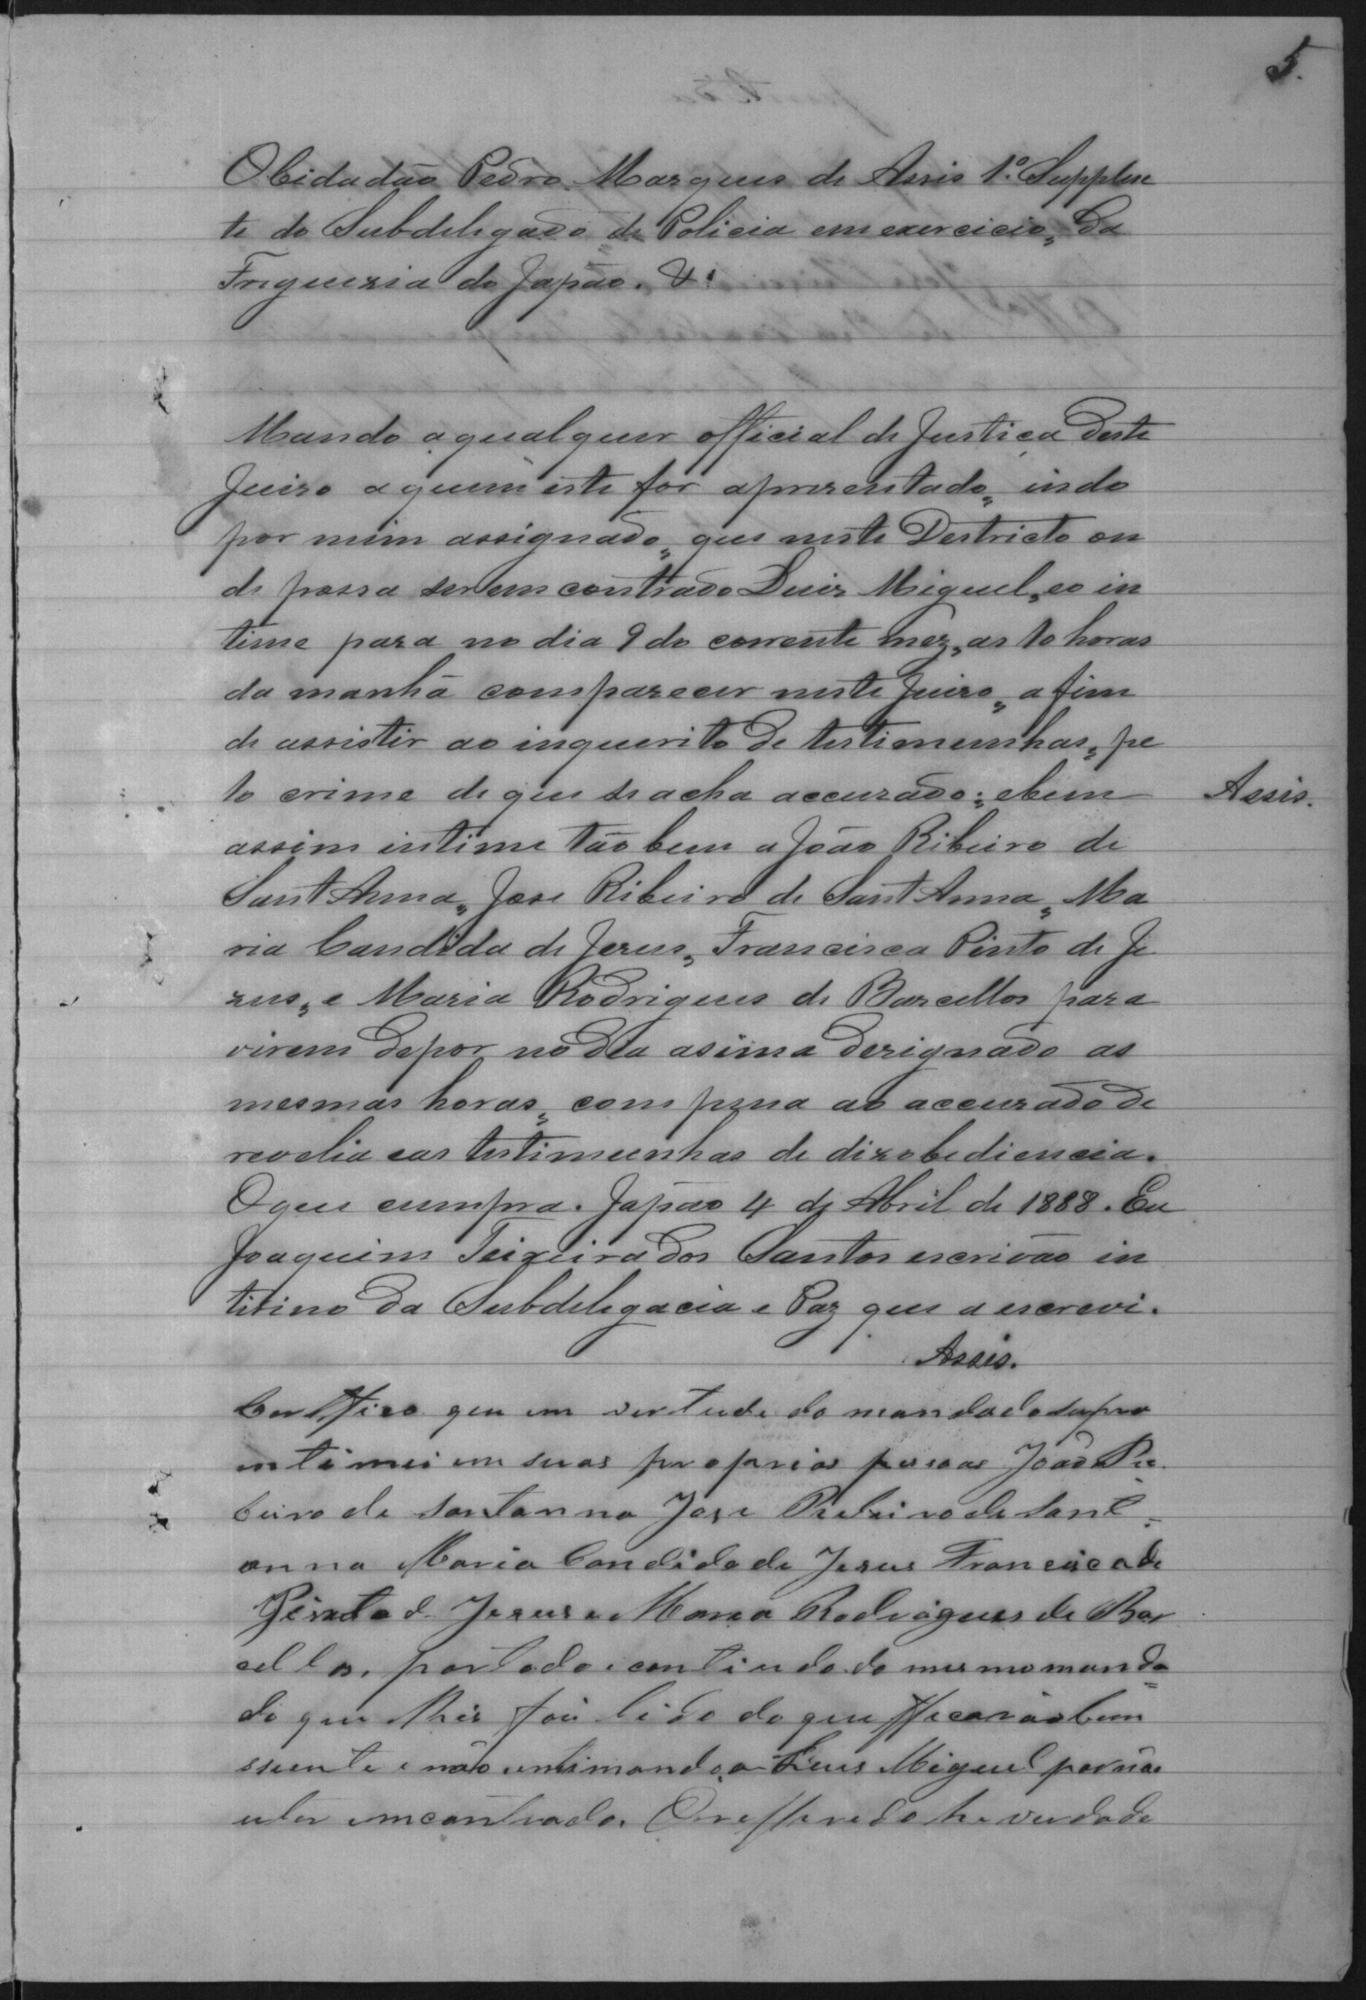 5.
O Cidadão Pedro Marques de Assis 1º Supplen
te do Subdelegado de Policia em exercicio, da
Freguezia do Japão. &.
Mando a qualquer official de Justiça deste
Juizo a quem este for aprezentado, indo
por mim assignado, que neste Destricto on
de possa ser emcontrado Luiz Miguel, eo in
time para no dia 9 do corrente mez, as 10 horas
da manhã comparecer neste Juizo, a fim
de assistir ao inquerito de testimunhas, pe
lo crime de que se acha accuzado; e bem
Assis.
assim intime tão bem a João Ribeiro de
Sant Anna, Jose Ribeiro de Sant Anna, Ma
ria Candida de Jezus, Francisca Pinto de Je
zus, e Maria Rodrigues de Barcellos para
virem depor no dia asima dezignado as
mesmas horas, com pena ao accuzado de
revelia eas testimunhas de dizobediencia.
O que cumpra. Japão 4 de Abril de 1888. Eu
Joaquim Teixeira dos Santos escrivão in
tirino da Subdelegacia e Paz que a escrevi.
Assis.
Certifico que em vertude do mandado supra
intimei em suas proprias pesoas João Ri
beiro de Santanna Jose Ribeiro de Sant
anna Maria Candida de Jesus Francisca de
Pinto d Jesus e Maria Rodrigues de Bar
cellos, por todo contiudo do mesmo manda
do que lhes foi lido do que fficarão bem
siente e não intimando a Luis Miguel por não
ter emcontrado. O refferedo he verdade